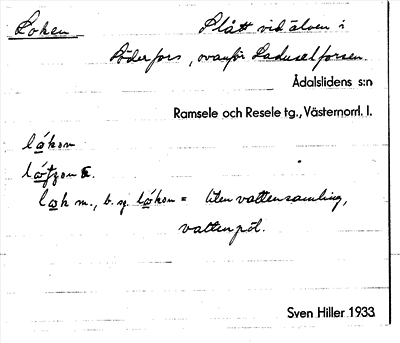 Loken
Slått vid älven i
Söderfors, ovanför Laduselforsen.
Ådalslidens s:n
Ramsele och Resele tg., Västernorrl. l.
låkon
låk m., b. sg. låkon = liten vattensamling,
vattenpöl.
Sven Hiller 1933